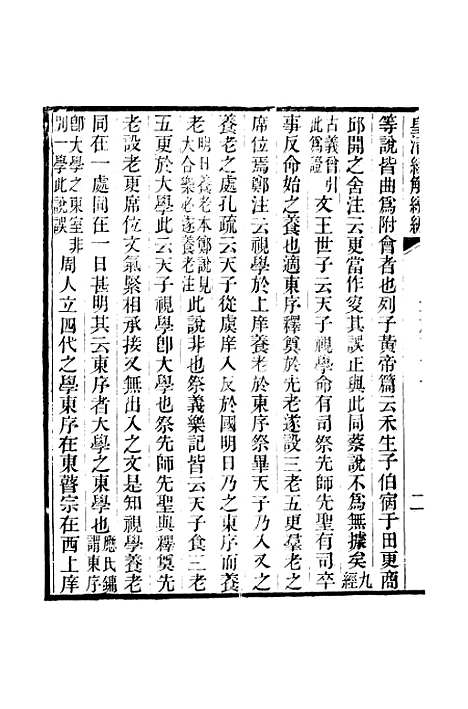 皇清經解續編
二
等說皆曲爲附會者也列子黃帝篇云禾生子伯宿于田更商
邱開之舍注云更當作叟其誤正與此同蔡說不爲無據矣九經
古義曾引此爲證文王世子云天子視學命有司祭先師先聖有司卒
事反命始之養也適東序釋奠於先老遂設三老五更羣老之
席位焉鄭注云視學於上庠養老於東序祭畢天子乃入又之
養老之處孔疏云天子從虞庠入反於國明日乃之東序而養
老明日養老本鄭說見大合樂必遂養老注此說非也祭義樂記皆云天子食三老
五更於大學此云天子視學卽大學也祭先師先聖與釋奠先
老設老更席位文氣緊相承接又無出入之文是知視學養老
同在一處同在一日甚明其云東序者大學之東學也應氏鏞謂東序
卽大學之東室非別一學此說誤周人立四代之學東序在東瞽宗在西上庠